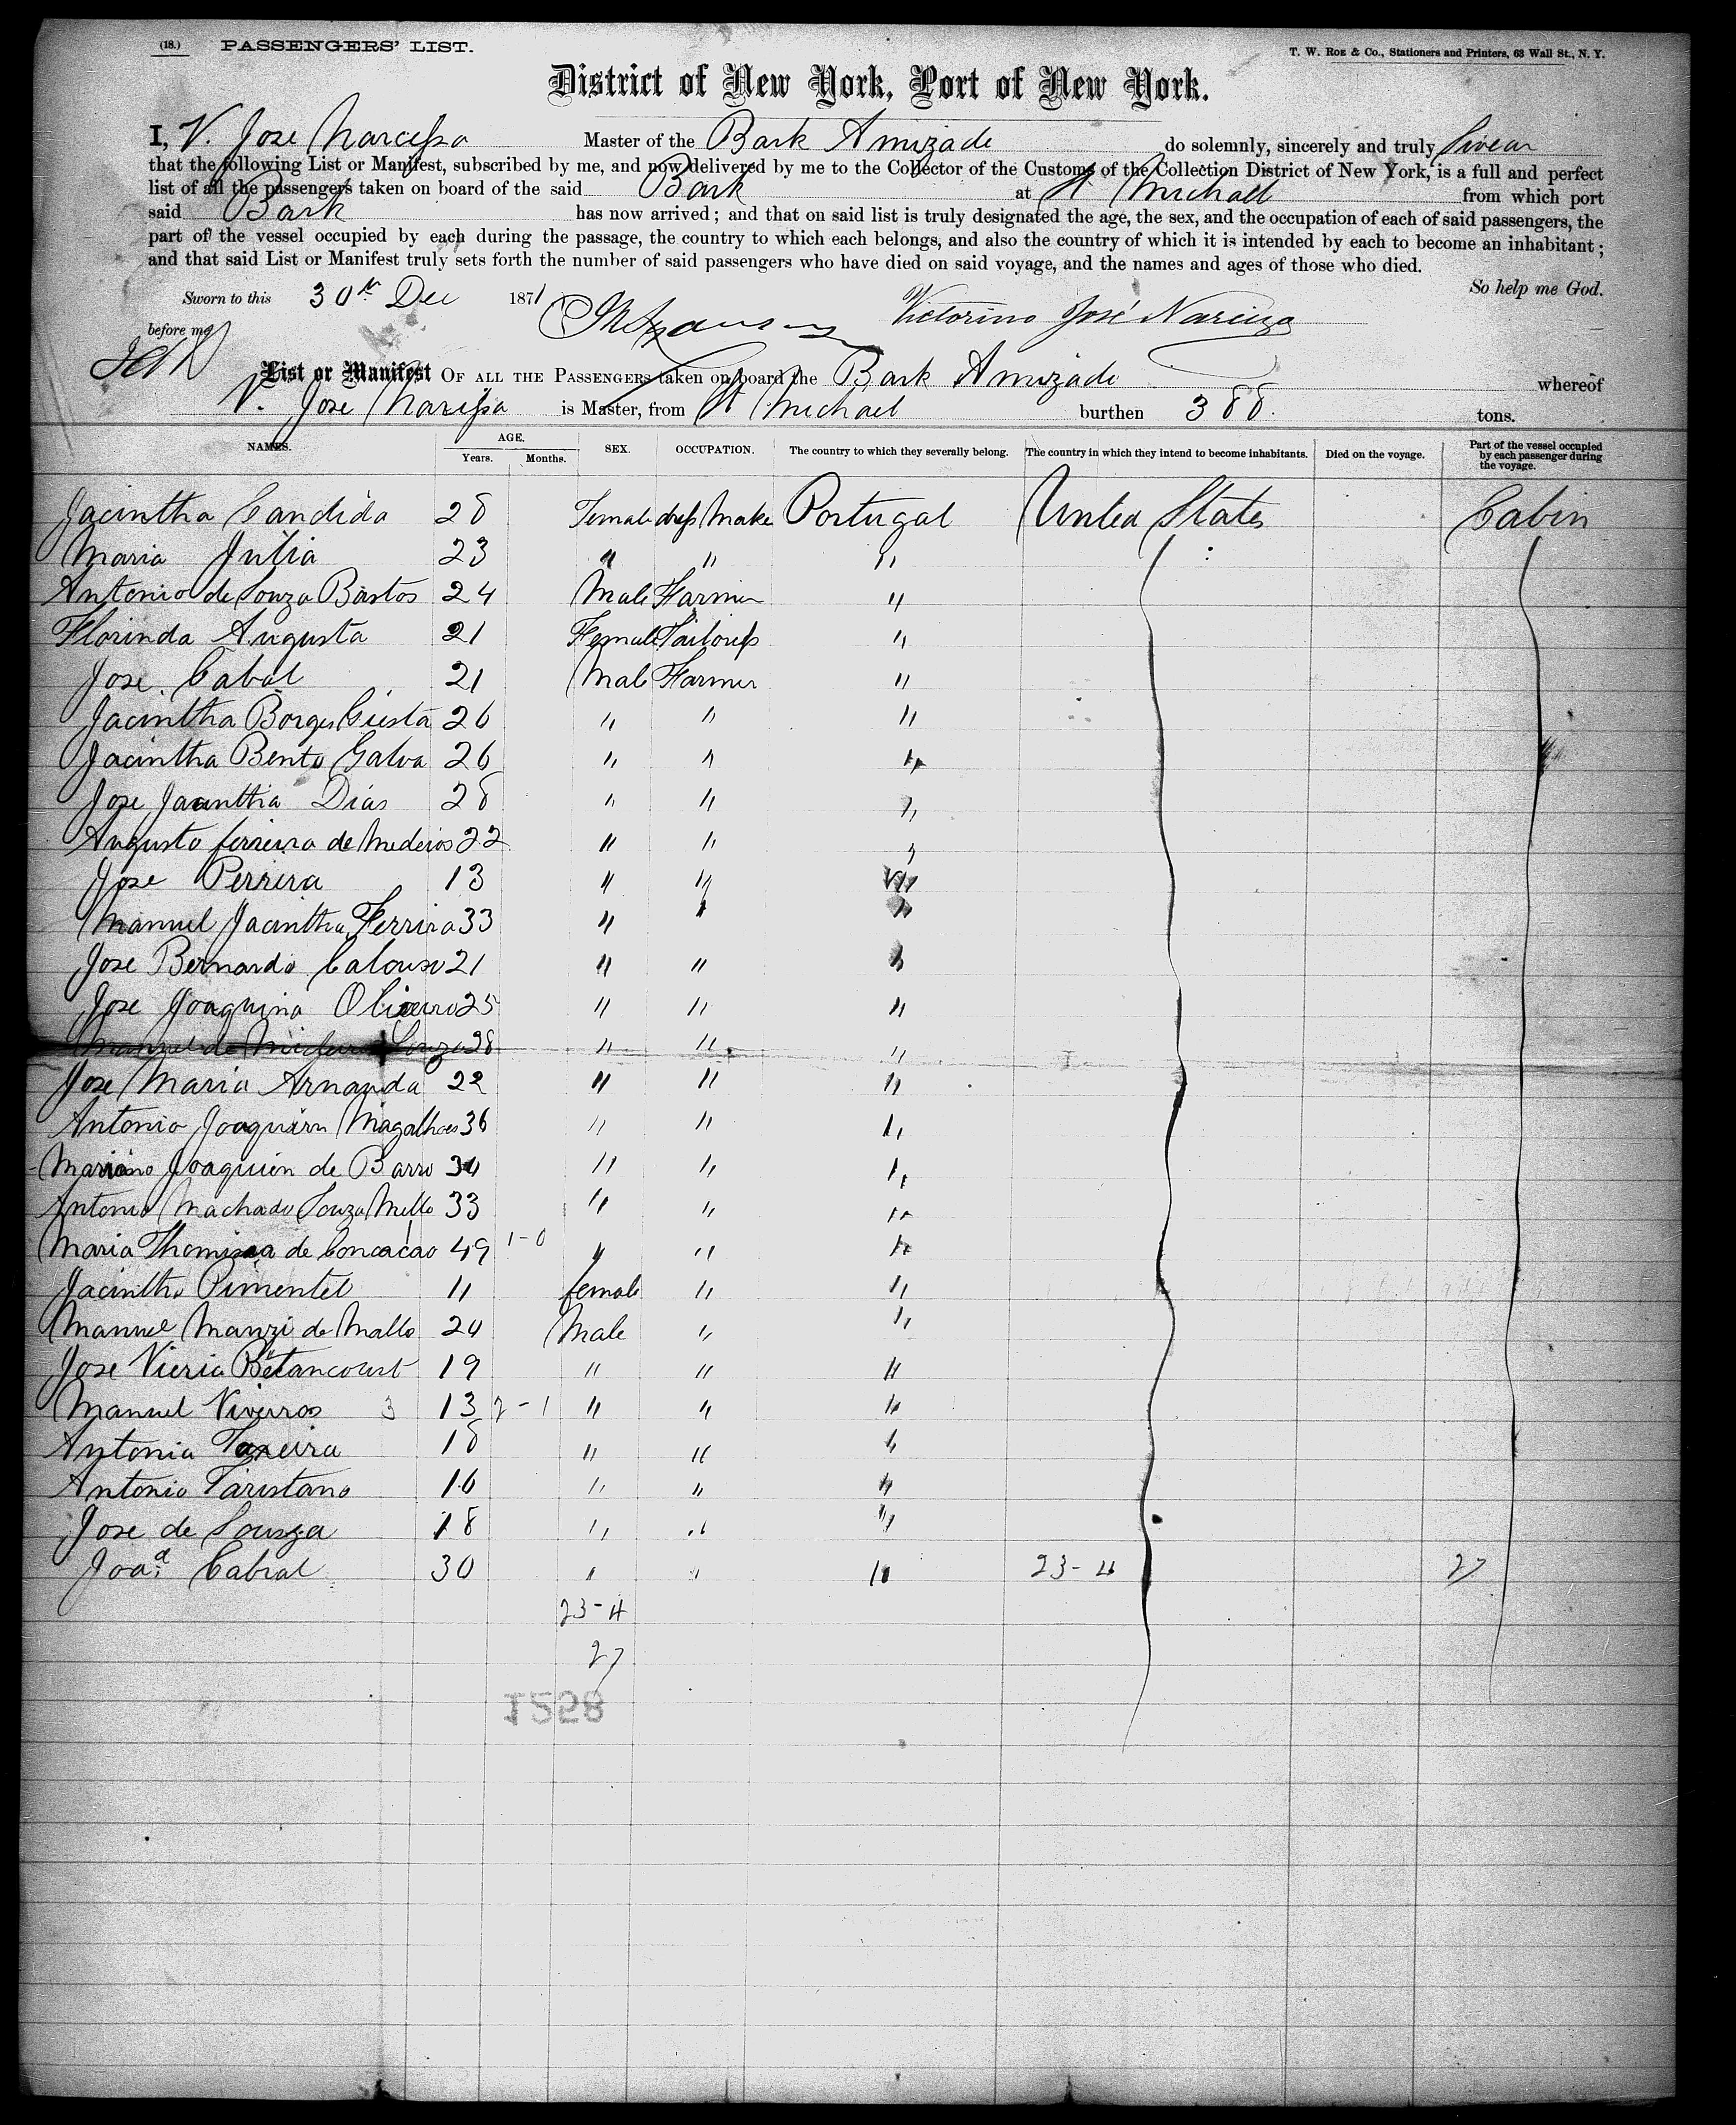 (18.) PASSENGERS' LIST. T. W. Roe & Co., Stationers and Printers, 63 Wall St., N. Y.
District of New York, Port of New York.
I, V. Jose Narcissa Master of the Bark Amizade do solemnly, sincerely and truly Swear
that the following List or Manifest, subscribed by me, and now delivered by me to the Collector of the Customs of the Collection District of New York, is a full and perfect
list of all the passengers taken on board of the said Bark at St Michall from which port
said Bark has now arrived; and that on said list is truly designated the age, the sex, and the occupation of each of said passengers, the
part of the vessel occupied by each during the passage, the country to which each belongs, and also the country of which it is intended by each to become an inhabitant;
and that said List or Manifest truly sets forth the number of said passengers who have died on said voyage, and the names and ages of those who died.
So help me God.
Sworn to this 30th Dec 1871 Victorino José Narcizo
before me
List or Manifest OF ALL THE PASSENGERS taken on board the Bark Amizade whereof
V. Jose Narcissa is Master, from St Michael burthen 388. tons.
NAMES. AGE. Years. Months. SEX. OCCUPATION. The country to which they severally belong. The country in which they intend to become inhabitants. Died on the voyage. Part of the vessel occupied by each passenger during the voyage.
Jacintha Candida 28 Female dress Make Portugal United States Cabin
Maria Julia 23 " " "
Antonio de Souza Bastos 24 Male Farmer "
Florinda Augusta 21 Female Tailoress "
Jose Cabal 21 Male Farmer "
Jacintha Borges Giesta 26 " " "
Jacintha Bento Galva 26 " " "
Jose Jacinthia Dias 28 " " "
Augusto ferreira de Medeiros 22 " " "
Jose Perrira 13 " " "
Manuel Jacintha Ferrira 33 " " "
Jose Bernardo Calouso 21 " " "
Jose Joaquina Olivierro 25 " " "
Manuel de Souza 28 " " "
Jose Maria Arnanda 22 " " "
Antonio Joaquim Magalhaes 36 " " "
Mariano Joaquin de Barro 34 " " "
Antonio Machado Souza Mello 33 " " "
Maria Thomisia de Concacao 49 1-0 " " "
Jacintho Pimentel 11 female " "
Manuel Manzi de Mallo 24 Male " "
Jose Vieria Betancourt 19 " " "
Manuel Viveiros 3 13 2-1 " " "
Antonia Taxeira 18 " " "
Antonio Taristano 16 " " "
Jose de Sousza 18 " " "
Joaª Cabral 30 " " " 23-4 27
23-4
27
1258